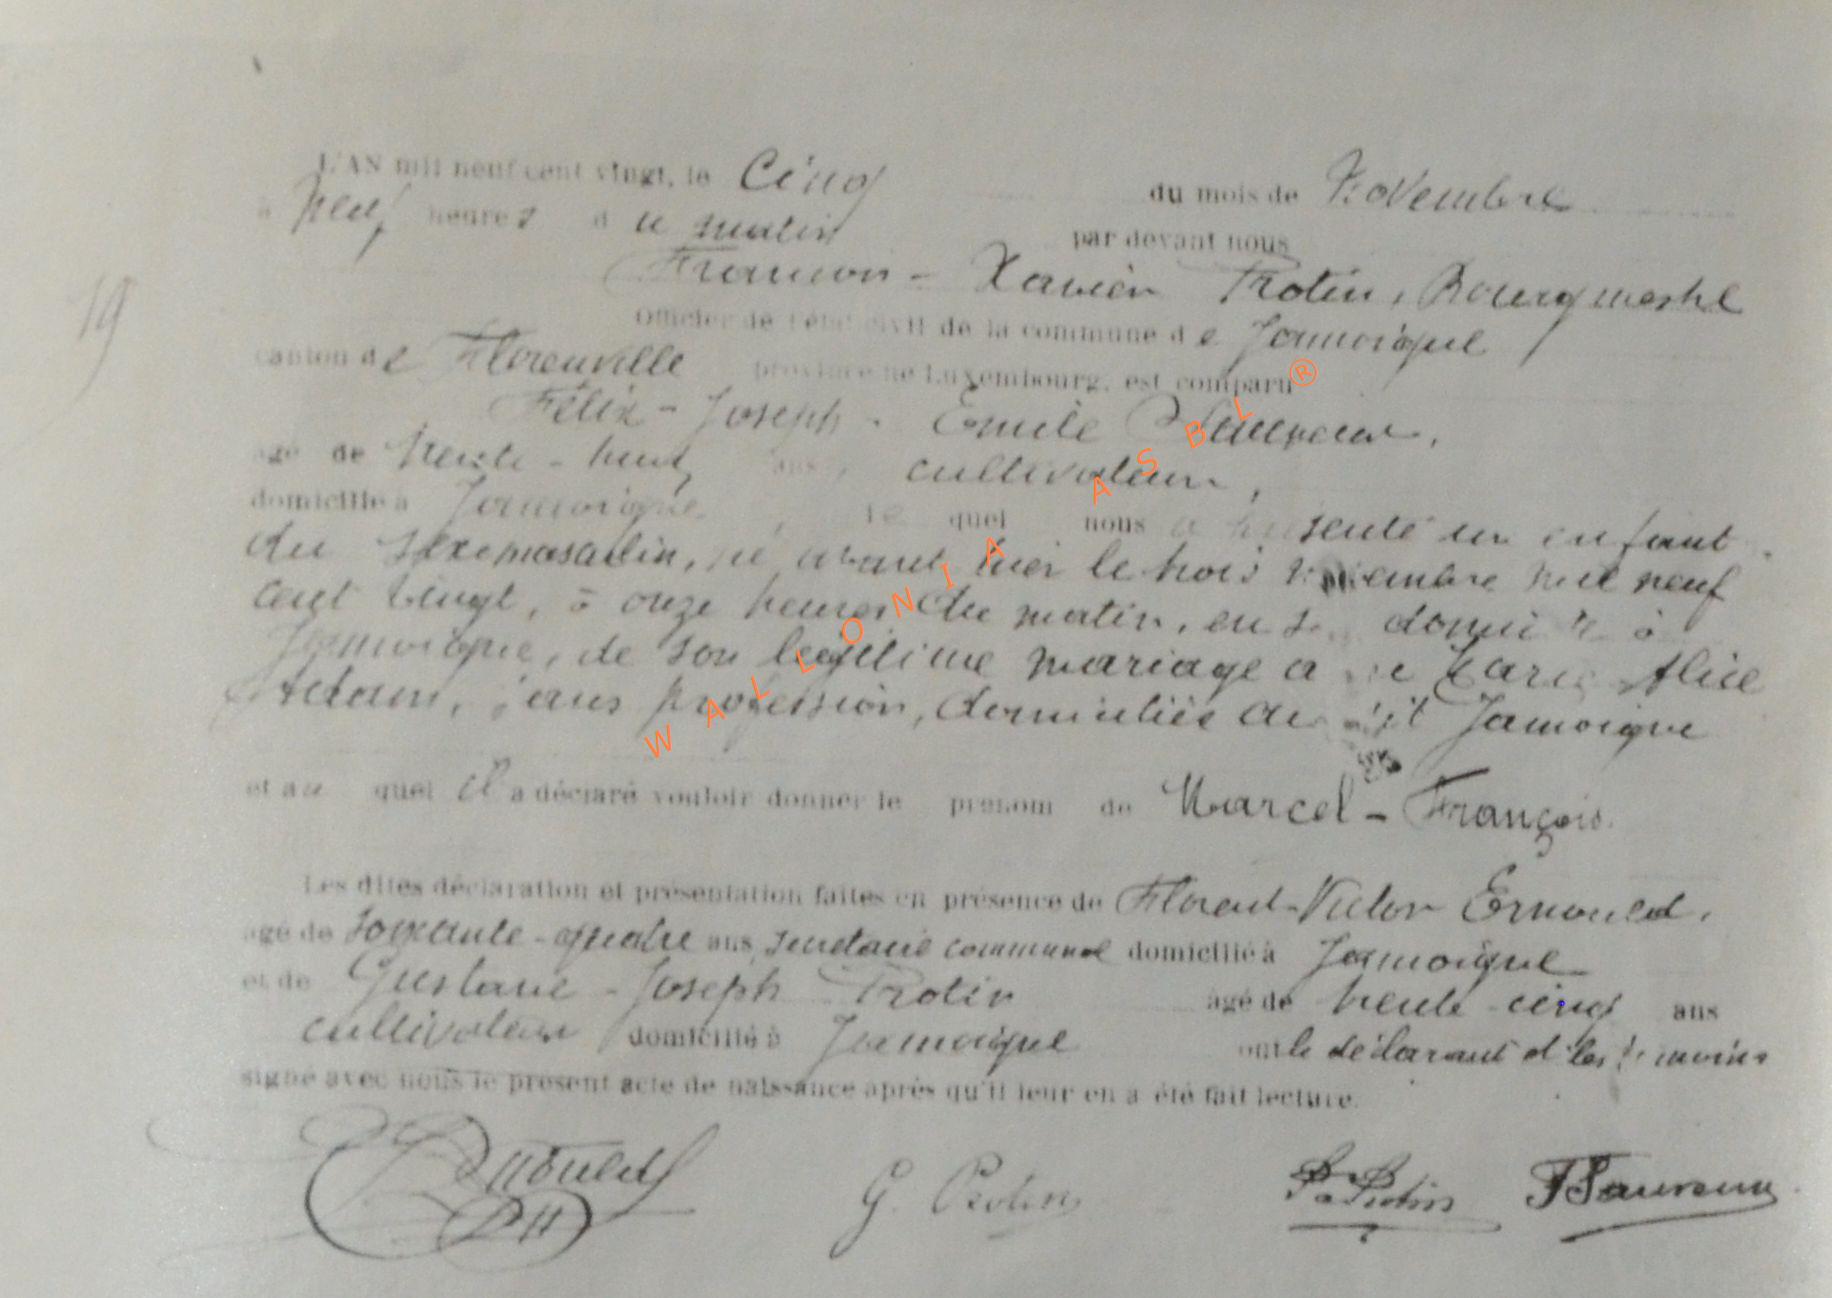 L'AN mil neuf cent vingt, le Cinq du mois de Novembre
à Neuf heures du matin par devant nous
François - Xavier Protin, Bourgmestre
officier de l'état civil de la commune de Jamoigne
19
canton de Florenville province de Luxembourg, est comparu
Félix - Joseph - Emile
âgé de trente - huit ans, cultivateur,
domicilié à Jamoigne, le quel nous a présenté un enfant
du sexe masculin, né avant hier le trois novembre mil neuf
cent vingt, à onze heures du matin, en sa à
Jamoigne, de son légitime mariage avec Marie Alice
Adam, sans profession, domiciliée au dit Jamoigne
et au quel il a déclaré vouloir donner le prénom de Marcel - François.
Les dites déclaration et présentation faites en présence de Florent - Victor Ernould,
âgé de soixante - quatre ans, secrétaire communal domicilié à Jamoigne
et de Gustave - Joseph Protin âgé de trente - cinq ans
cultivateur domicilié à Jamoigne ont le déclarant et les témoins
signé avec nous le présent acte de naissance après qu'il leur en a été fait lecture.
Ernould G. Protin Protin
WALLONIA ASBL®